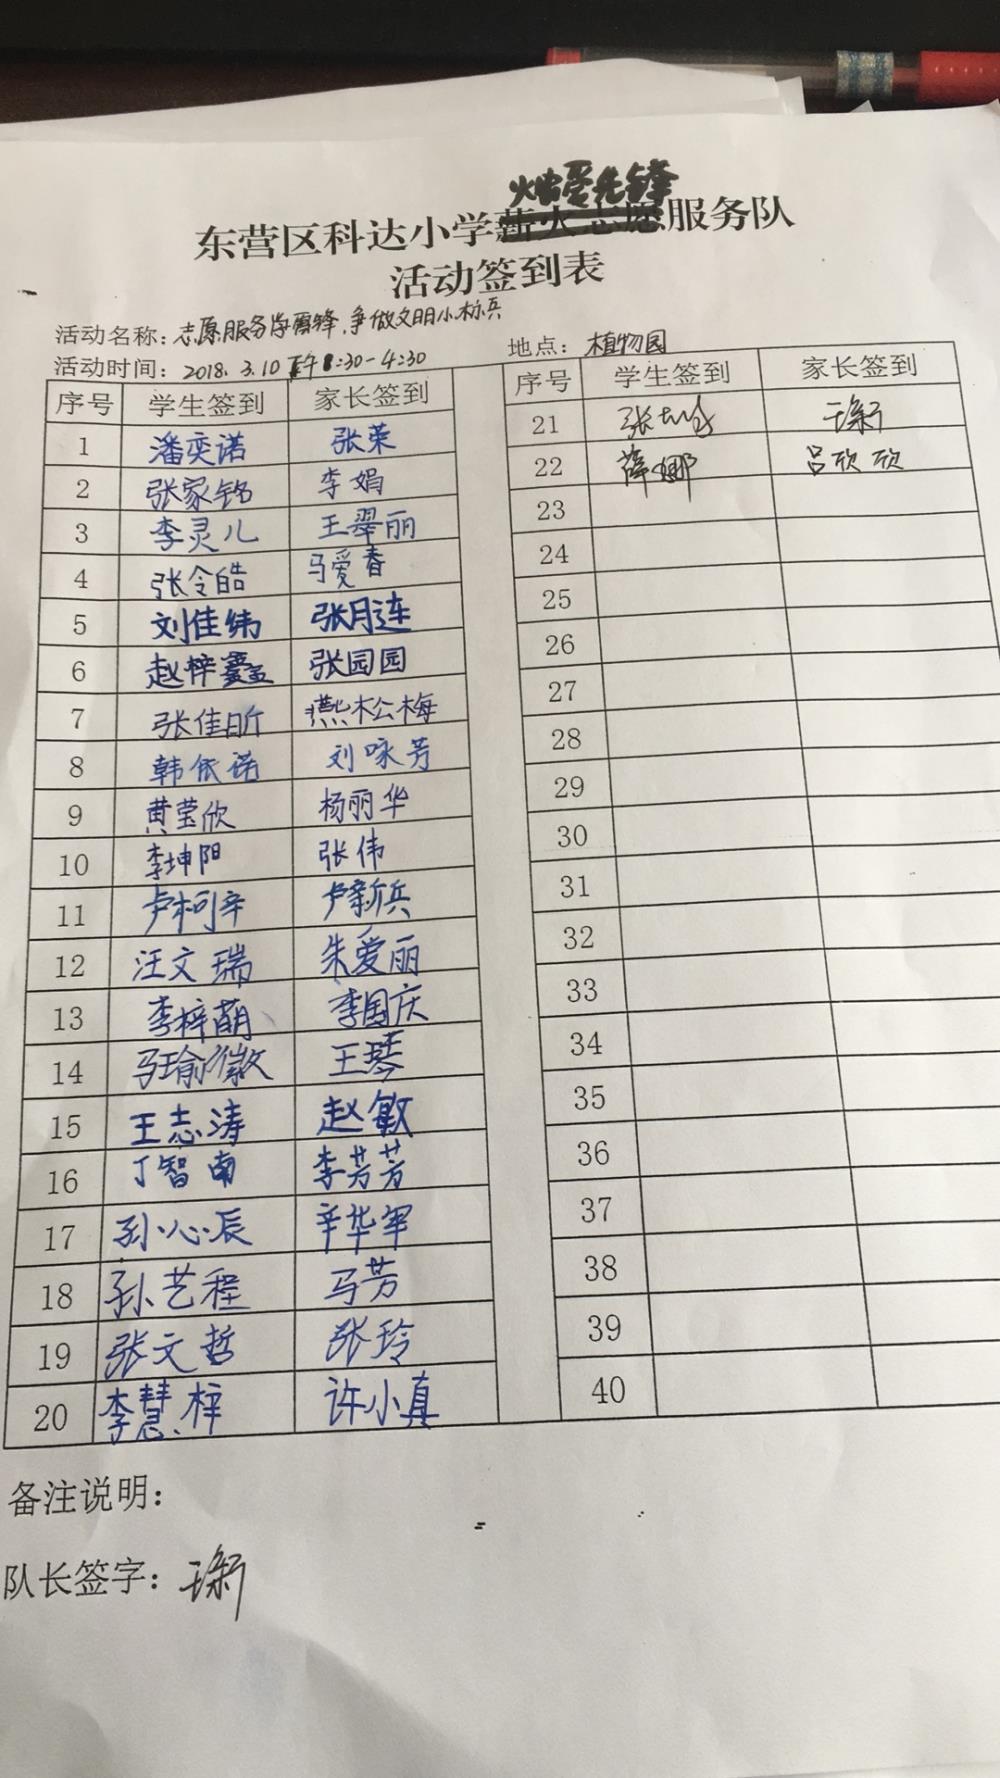 爱先锋
东营区科达小学薪火志愿服务队
活动签到表
活动名称：志愿服务学雷锋，争做文明小标兵
活动时间：2018.3.10 下午 :30-4:30 地点：植物园
序号 学生签到 家长签到
1 潘奕诺 张荣
2 张家铭 李娟
3 李灵儿 王翠丽
4 张令皓 马爱春
5 刘佳纬 张月连
6 赵梓 张园园
7 张佳昕 燕松梅
8 韩依诺 刘咏芳
9 黄莹欣 杨丽华
10 李坤阳 张伟
11 卢柯辛 卢新兵
12 汪文瑞 朱爱丽
13 李梓萌 李国庆
14 马瑜徽 王琴
15 王志涛 赵敏
16 丁智南 李芳芳
17 孙心辰 辛华军
18 孙艺程 马芳
19 张文哲 张玲
20 李慧梓 许小真
序号 学生签到 家长签到
21 张
22 薛娜 吕欣欣
23
24
25
26
27
28
29
30
31
32
33
34
35
36
37
38
39
40
备注说明：
队长签字：